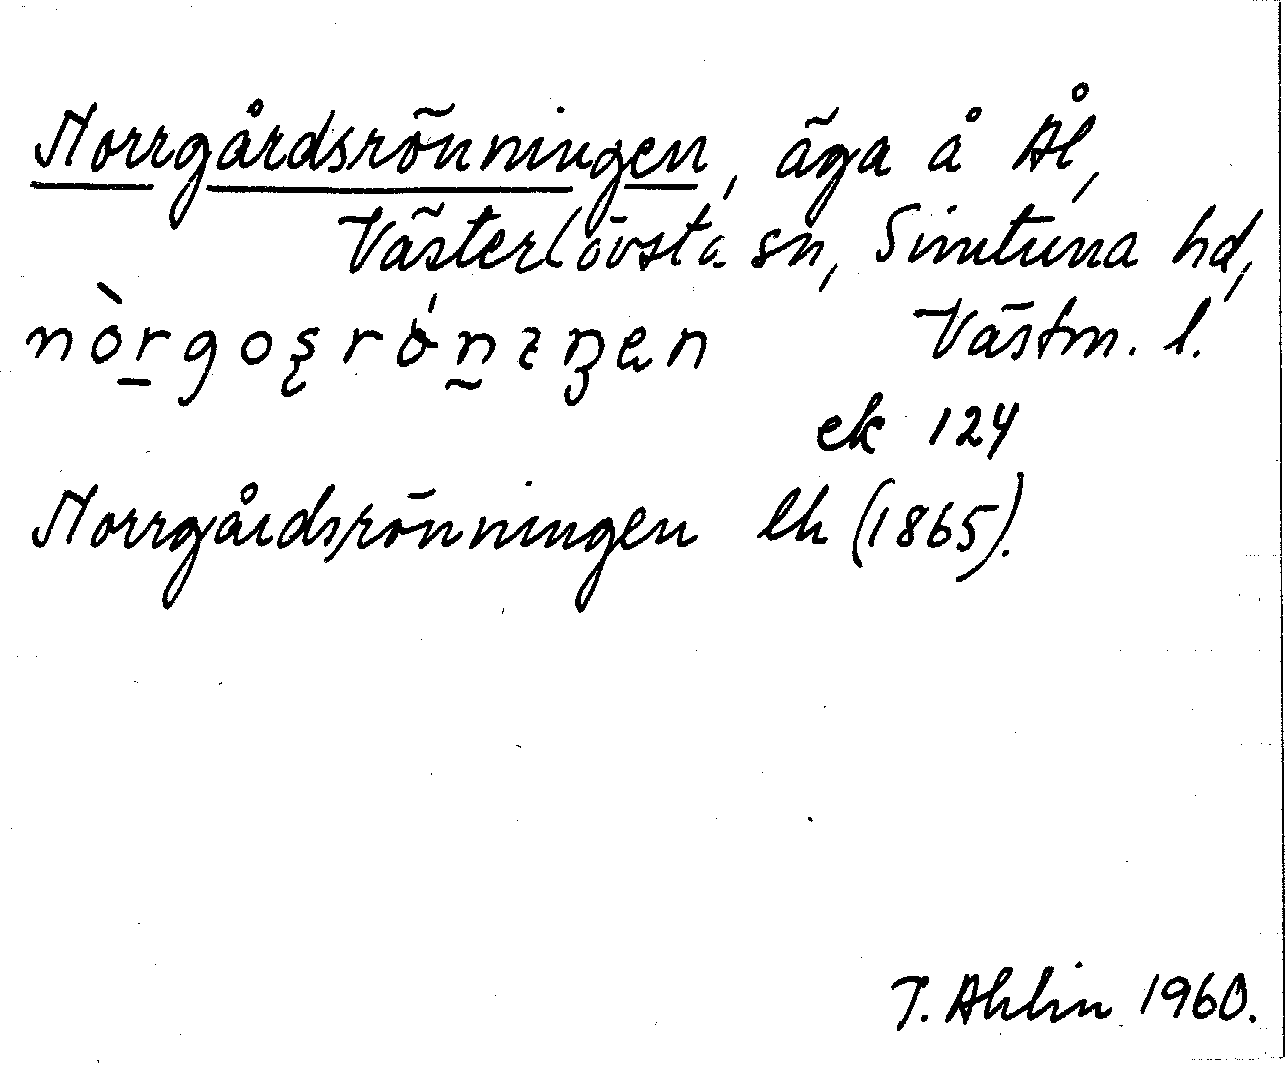 Norrgårdsrönningen, äga å Ål,
Västerlövsta sn, Simtuna hd,
Västm. l.
ek 124
Norrgårdsrönningen lh (1865).
T. Ahlin 1960.